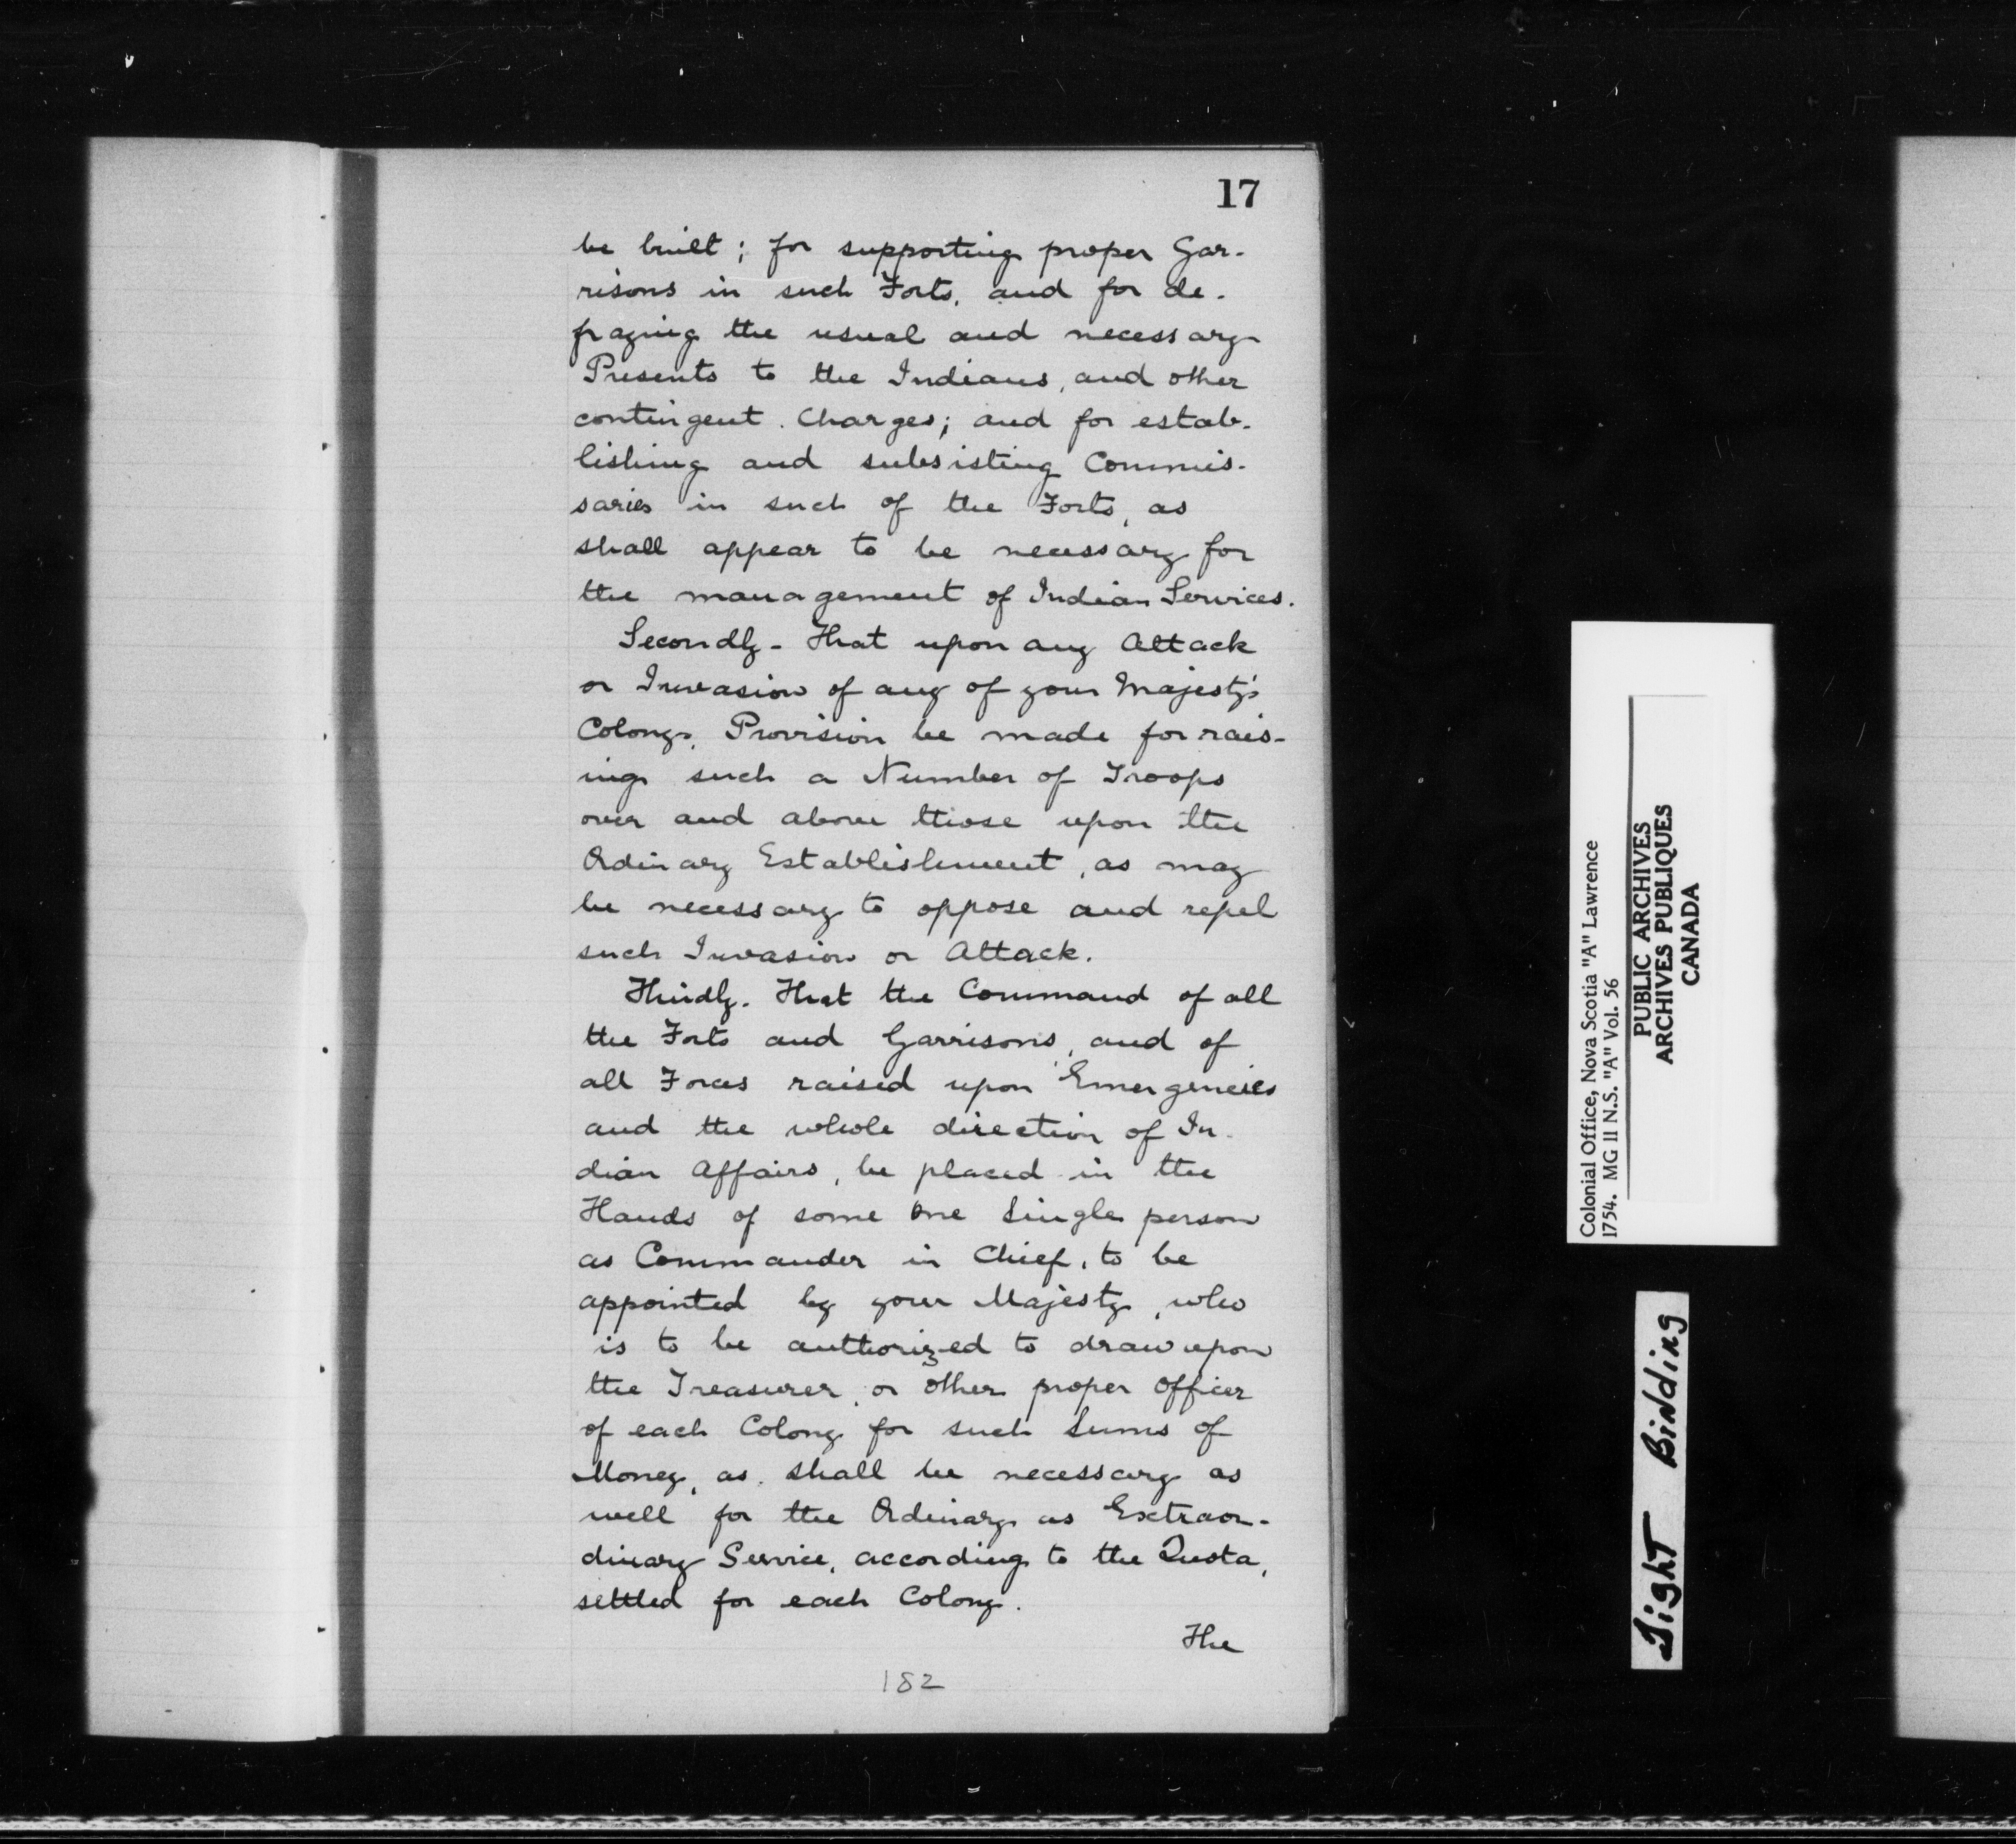 17
be built; for supporting proper Gar-
risons in such Forts, and for de-
fraying the usual and necessary
Presents to the Indians, and other
contingent Charges; and for estab-
lishing and subsisting Commis-
saries in such of the Forts, as
shall appear to be necessary for
the management of Indian Services.
Secondly - That upon any Attack
or Invasion of any of your Majesty's
Colony, Provision be made for rais-
ing such a Number of Troops
over and above those upon the
Ordinary Establishment, as may
be necessary to oppose and repel
such Invasion or Attack.
Thirdly. That the Command of all
the Forts and Garrisons, and of
all Forces raised upon Emergencies
and the whole direction of In-
dian Affairs, be placed in the
Hands of some One Single person
as Commander in Chief, to be
appointed by your Majesty, who
is to be authorized to draw upon
the Treasurer, or other proper Officer
of each Colony for such Sums of
Money, as shall be necessary as
well for the Ordinary as Extraor-
dinary Service, according to the Quota,
settled for each Colony.
The
182
Colonial Office, Nova Scotia "A" Lawrence
1754. MG II N.S. "A" Vol. 56
PUBLIC ARCHIVES
ARCHIVES PUBLIQUES
CANADA
Tight Binding